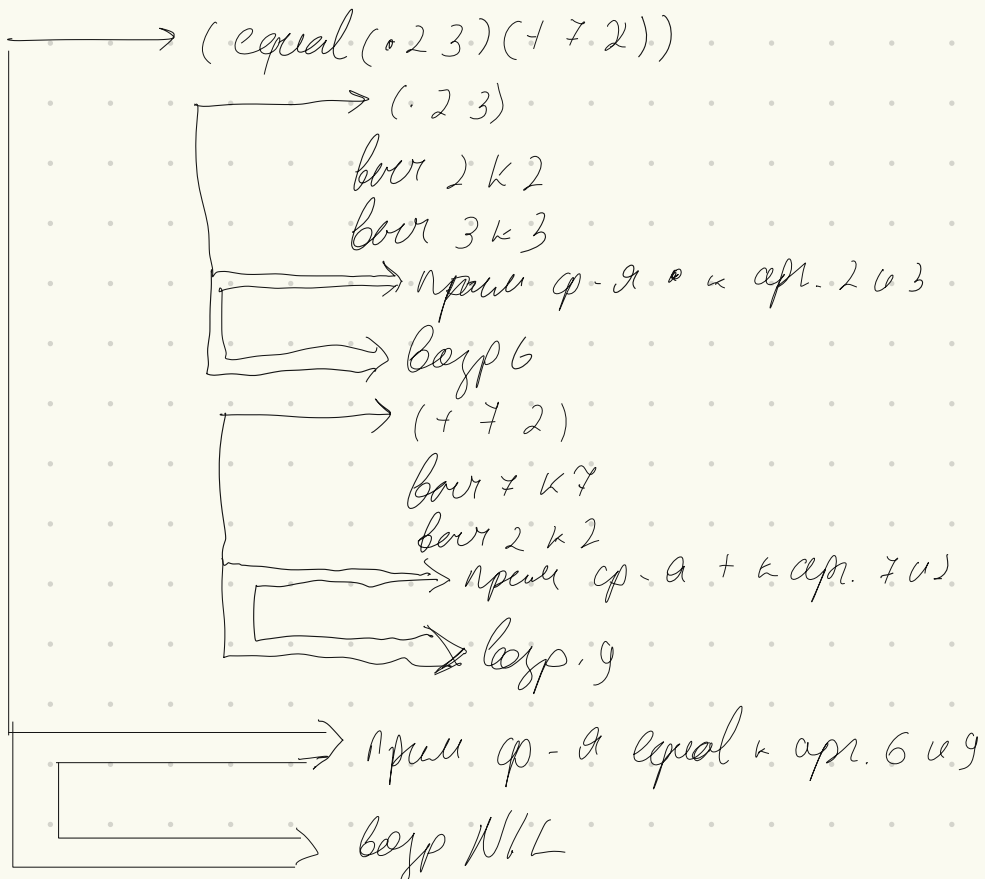 (equal(• 2 3)(+ 7 2))
(• 2 3)
выч 2 к 2
выч 3 к 3
прим ф-я • к арг. 2 и 3
возвр 6
(+ 7 2)
выч 7 к 7
выч 2 к 2
прим ф-я + к арг. 7 и 2
возвр. 9
прим ф-я equal к арг. 6 и 9
возвр NIL